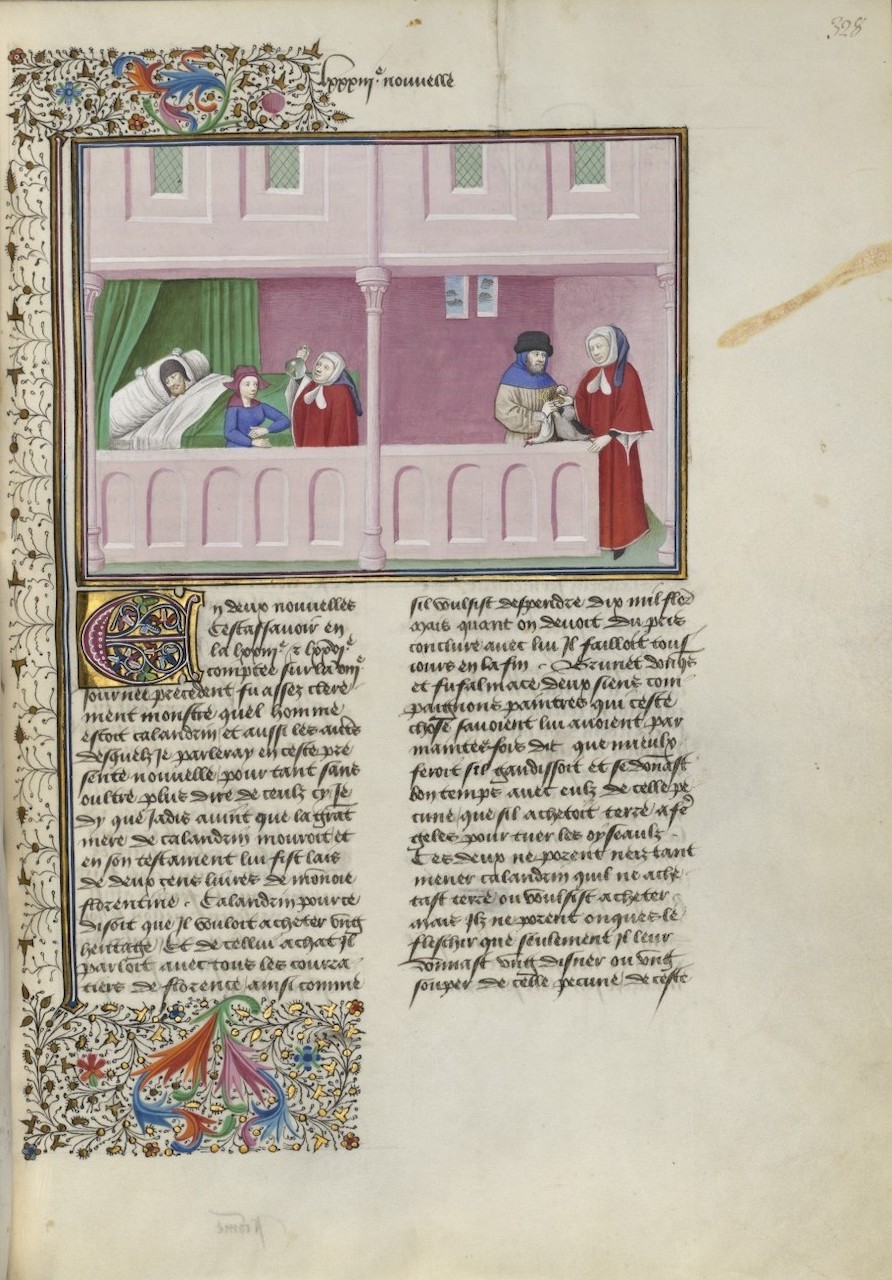 328
lxxxiiiᵉ nouvelle
En deux nouvelles
Cestassavoir en
comptees sur la viiiᵉ
Journee precedent fu assez clere
ment monstre quel homme
estoit calandrin et aussi les autres
desquelz Je parleray en ceste pre
sente nouvelle pour tant sans
oultre plus dire de ceulz cy Je
dy que Jadis avint que la grat
mere de calandrin mouroit et
en son testament lui fist lais
de deux cens livres de monoie
florentine · Calandrin pource
disoit que Il vouloit acheter ung
heritage Et de cellui achat Il
parloit avec tous les courra
tiers de florence ainsi comme
sil voulsist despendre dix mil flor
Mais quant on devoit du pris
conclure avec lui Il failloit tous
iours en la fin · Brunet donques
et bufalmace deux siens com
paignons paintres qui ceste
chose savoient lui avoient par
maintesfois dit que mieulx
feroit sil gaudissoit et se donast
bon temps avec eulz de celle pe
cune que sil achetoit terre a fē
geles pour tuer les oyseaulz ·
Ces deux ne porent nerz tant
mener calandrin quil ne ache
tast terre ou voulsist acheter ·
mais Ilz ne porent onques le
fleschir que seulement Il leur
donnast ung disner ou ung
souper de celle pecune de ceste